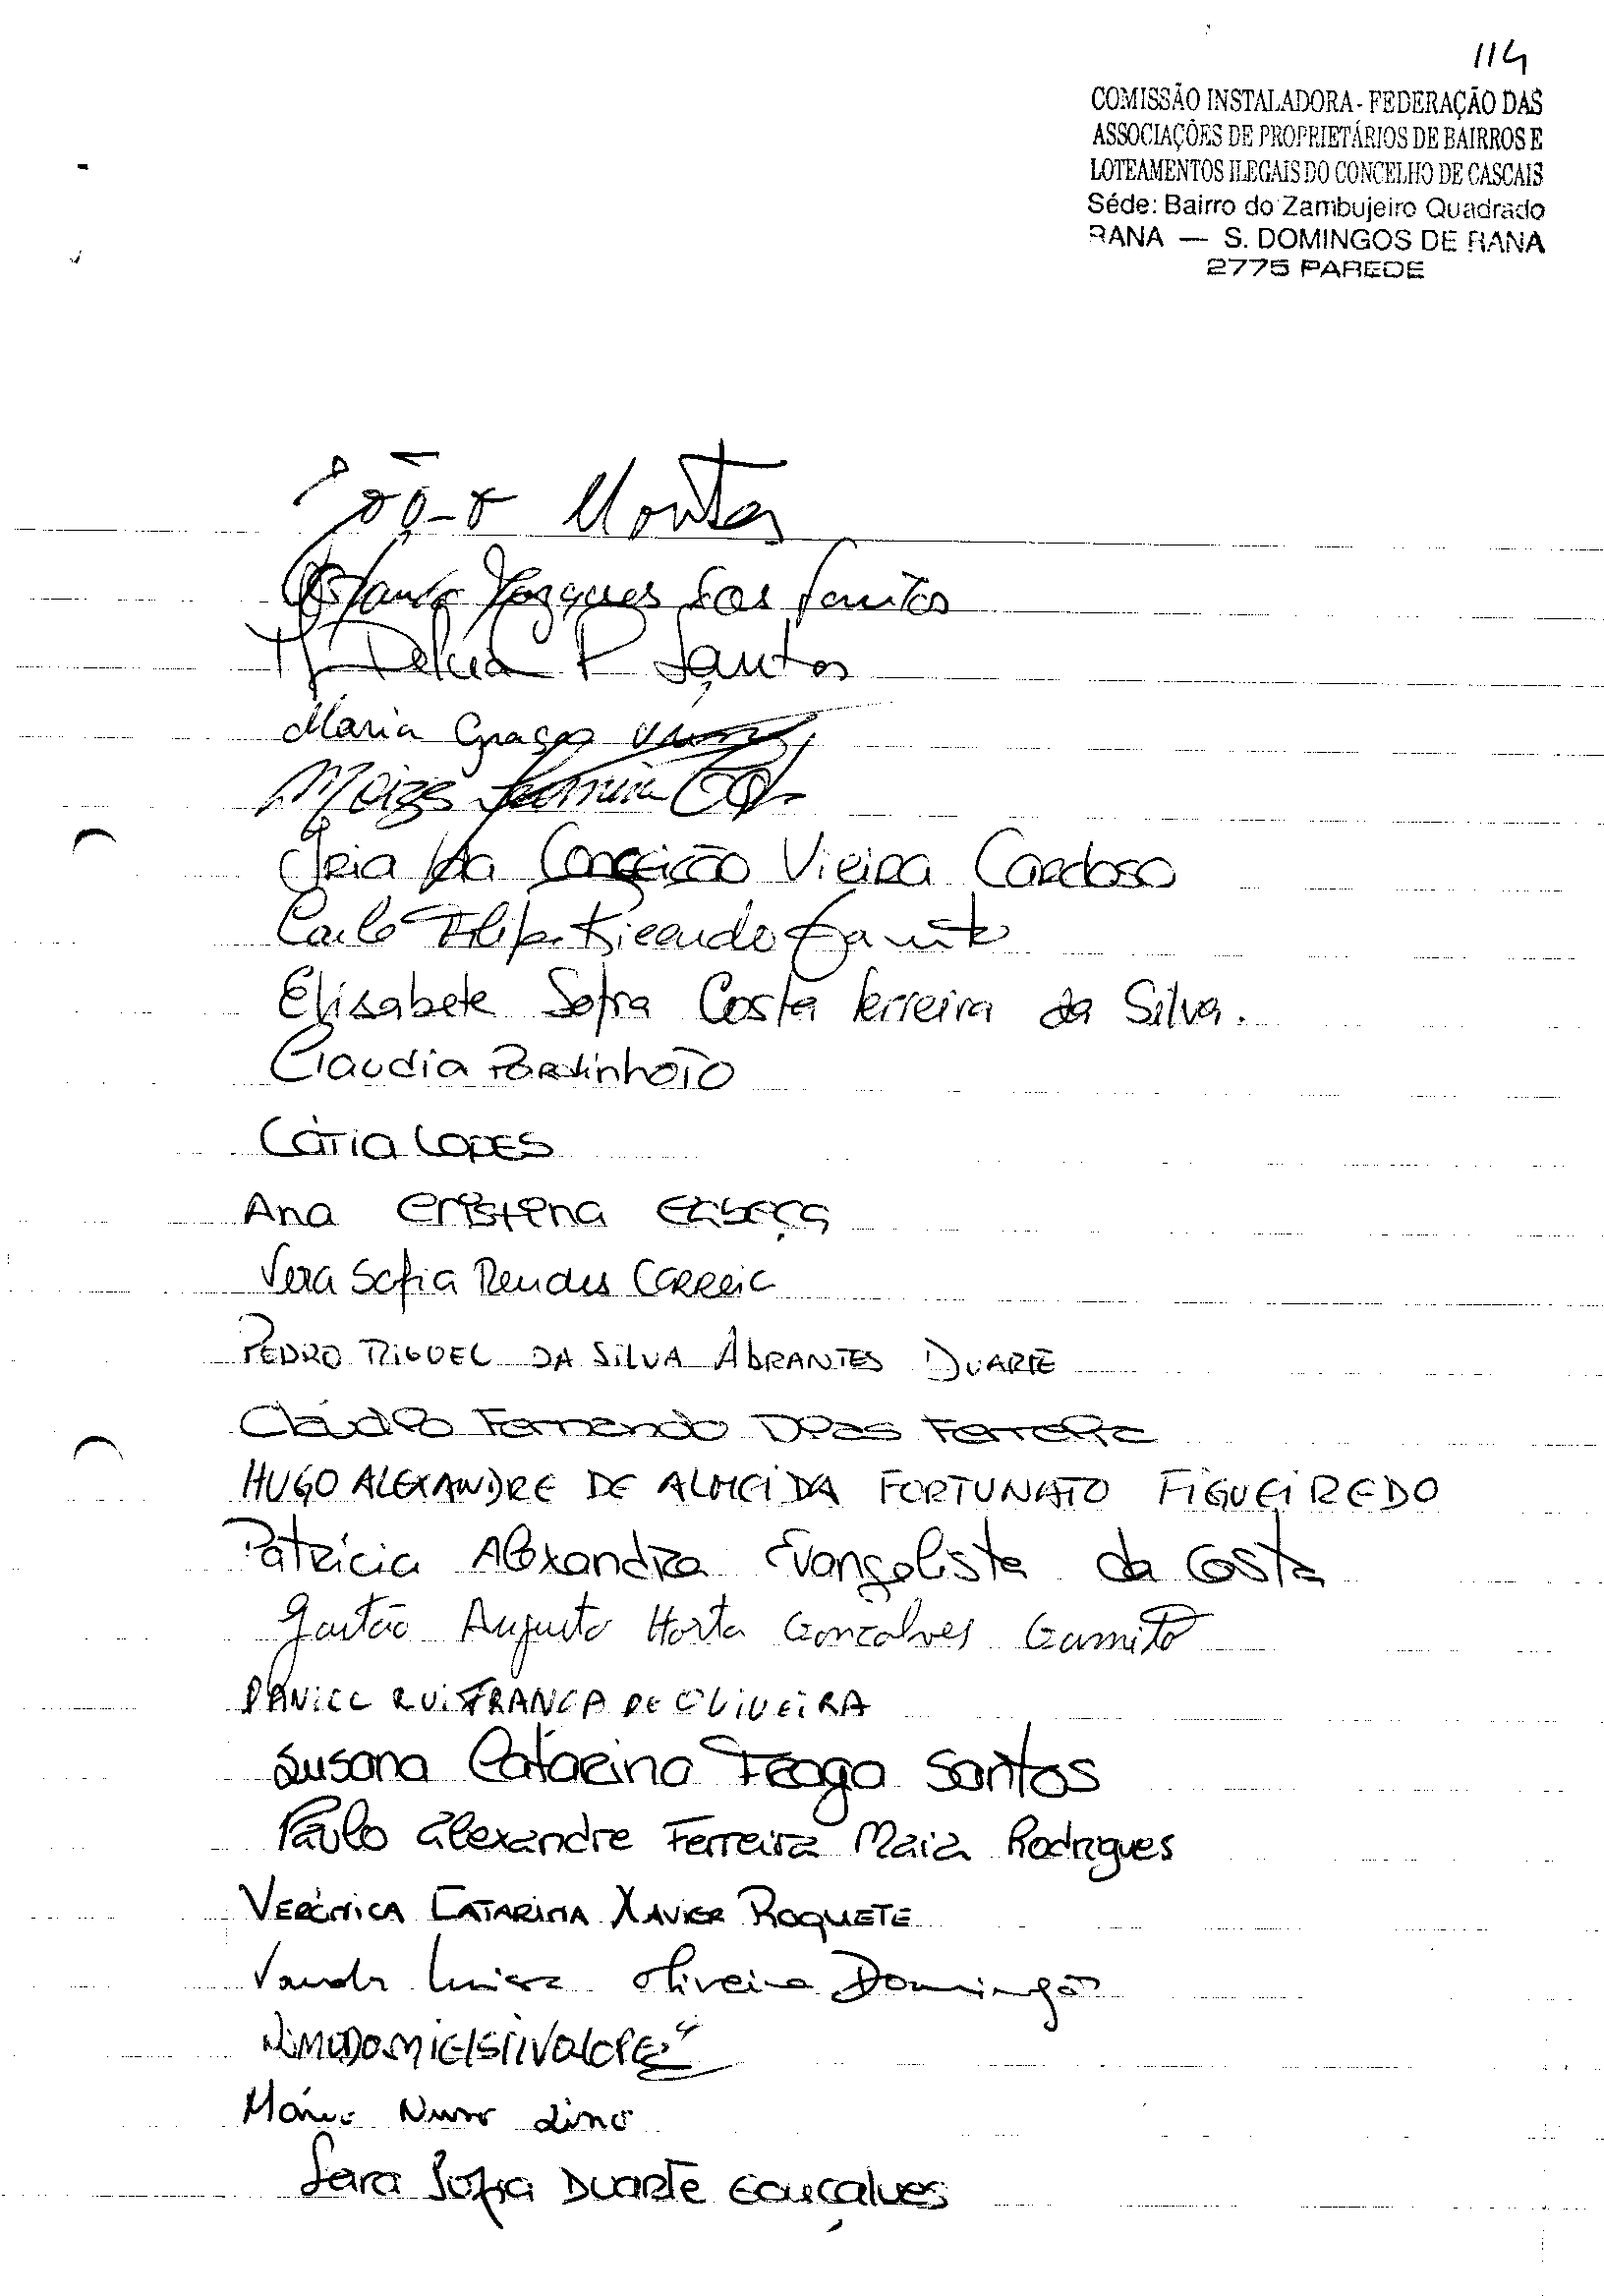 114
COMISSÃO INSTALADORA - FEDERAÇÃO DAS
ASSOCIAÇÕES DE PROPRIETÁRIOS DE BAIRROS E
LOTEAMENTOS ILEGAIS DO CONCELHO DE CASCAIS
Séde: Bairro do Zambujeiro Quadrado
RANA — S. DOMINGOS DE RANA
2775 PAREDE
João
dos Santos
P Santos
Maria
Vieira Cardoso
Ricardo
Elisabete Sofia Costa Ferreira da Silva.
Claudia
Cátia LOPES
Ana Cristina Cabeça
Vera Sofia Mendes CORREIA
PEDRO MIGUEL DA SILVA ABRANTES DUARTE
Cláudio Fernando Dias Ferreira
HUGO ALEXANDRE DE ALMEIDA FORTUNATO FIGUEIREDO
Patrícia Alexandra Evangelista da Costa
Gastão Augusto Horta Gonçalves Gamito
DANIEL RUI FRANCA DE OLIVEIRA
Susana Catarina Fraga Santos
Paulo Alexandre Ferreira Maia Rodrigues
VERÓNICA CATARINA XAVIER ROQUETE
Vanda Luisa Oliveira Domingos
Mário Nuno Lino
Sara Sofia Duarte Gonçalves